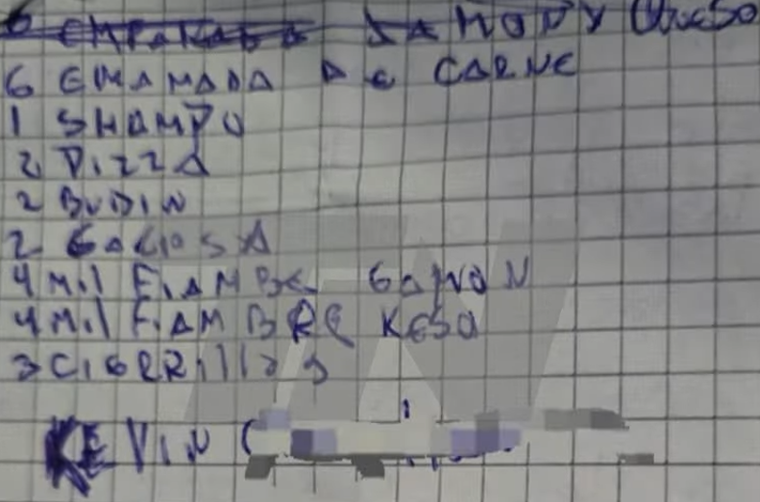 6 EMPANADAS JAMON Y QUESO
6 EMAMADA DE CARNE
1 SHAMPU
2 PIZZA
2 BUDIN
2 GACIOSA
4 Mil FIAMBRE GAMON
4 Mil FIAMBRE KESO
3 CIGRRillas
KEVIN (